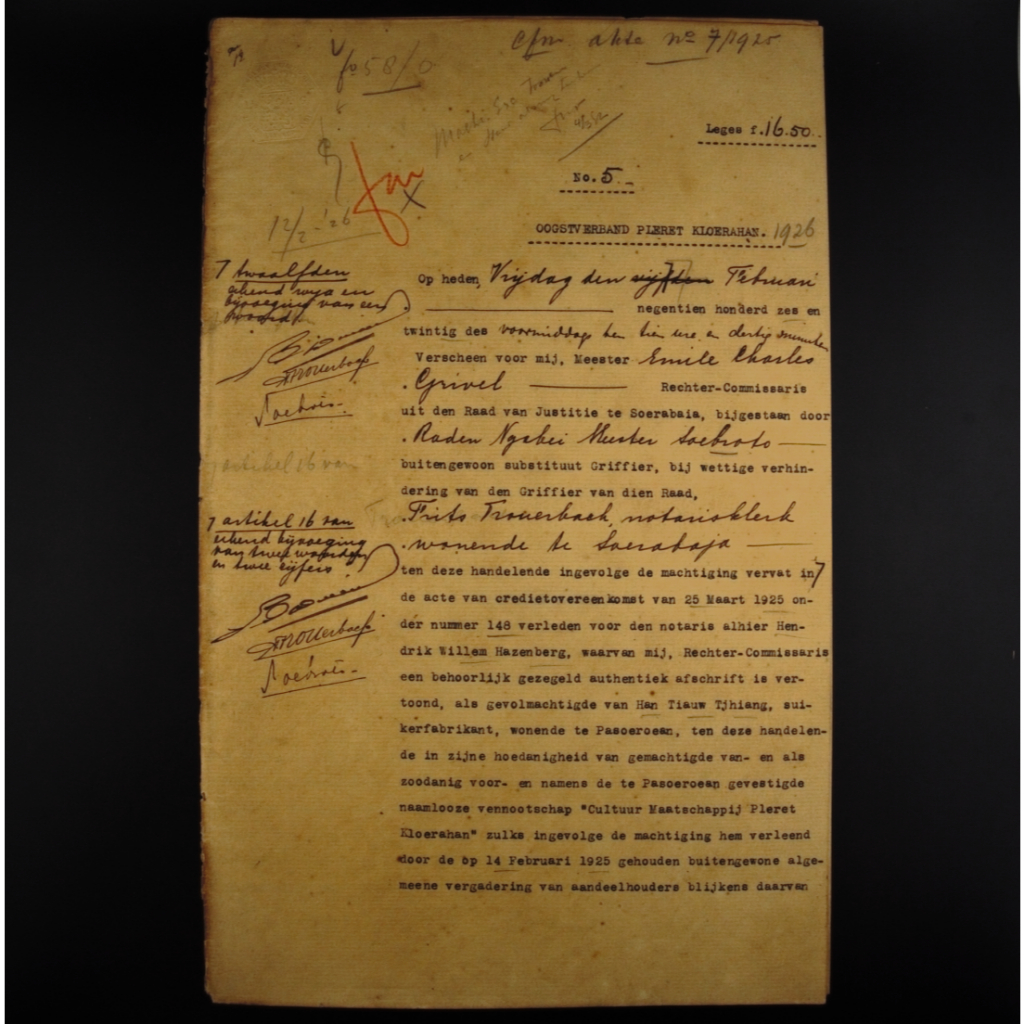 Cfm akte no 7/1925
fo 58/0
Leges f.16.50.
No. 5.
12/2-'26
OOGSTVERBAND PLERET KLOERAHAN. 1926
7 twaalfden
bijvoeging van een
woord!
Op heden, Vrijdag den vijfden Februari
negentien honderd zes en
twintig des voormiddags ten tien ure en dertig minuten
Verscheen voor mij, Meester Emile Charles
Grivel Rechter-Commissaris
uit den Raad van Justitie te Soerabaia, bijgestaan door
Raden Ngabei Meester Soebroto
buitengewoon substituut Griffier, bij wettige verhin-
dering van den Griffier van dien Raad,
artikel 16 van
7 artikel 16 van
erkend bijvoeging
van twee woorden
en twee cijfers!
Frits Trouerbach, notarisklerk
wonende te Soerabaja
ten deze handelende ingevolge de machtiging vervat in 7
de acte van credietovereenkomst van 25 Maart 1925 on-
der nummer 148 verleden voor den notaris alhier Hen-
drik Willem Hazenberg, waarvan mij, Rechter-Commissaris
een behoorlijk gezegeld authentiek afschrift is ver-
toond, als gevolmachtigde van Han Tiauw Tjhiang, sui-
kerfabrikant, wonende te Pasoeroean, ten deze handelen-
de in zijne hoedanigheid van gemachtigde van- en als
zoodanig voor- en namens de te Pasoeroean gevestigde
naamlooze vennootschap "Cultuur Maatschappij Pleret
Kloerahan" zulks ingevolge de machtiging hem verleend
door de op 14 Februari 1925 gehouden buitengewone alge-
meene vergadering van aandeelhouders blijkens daarvan